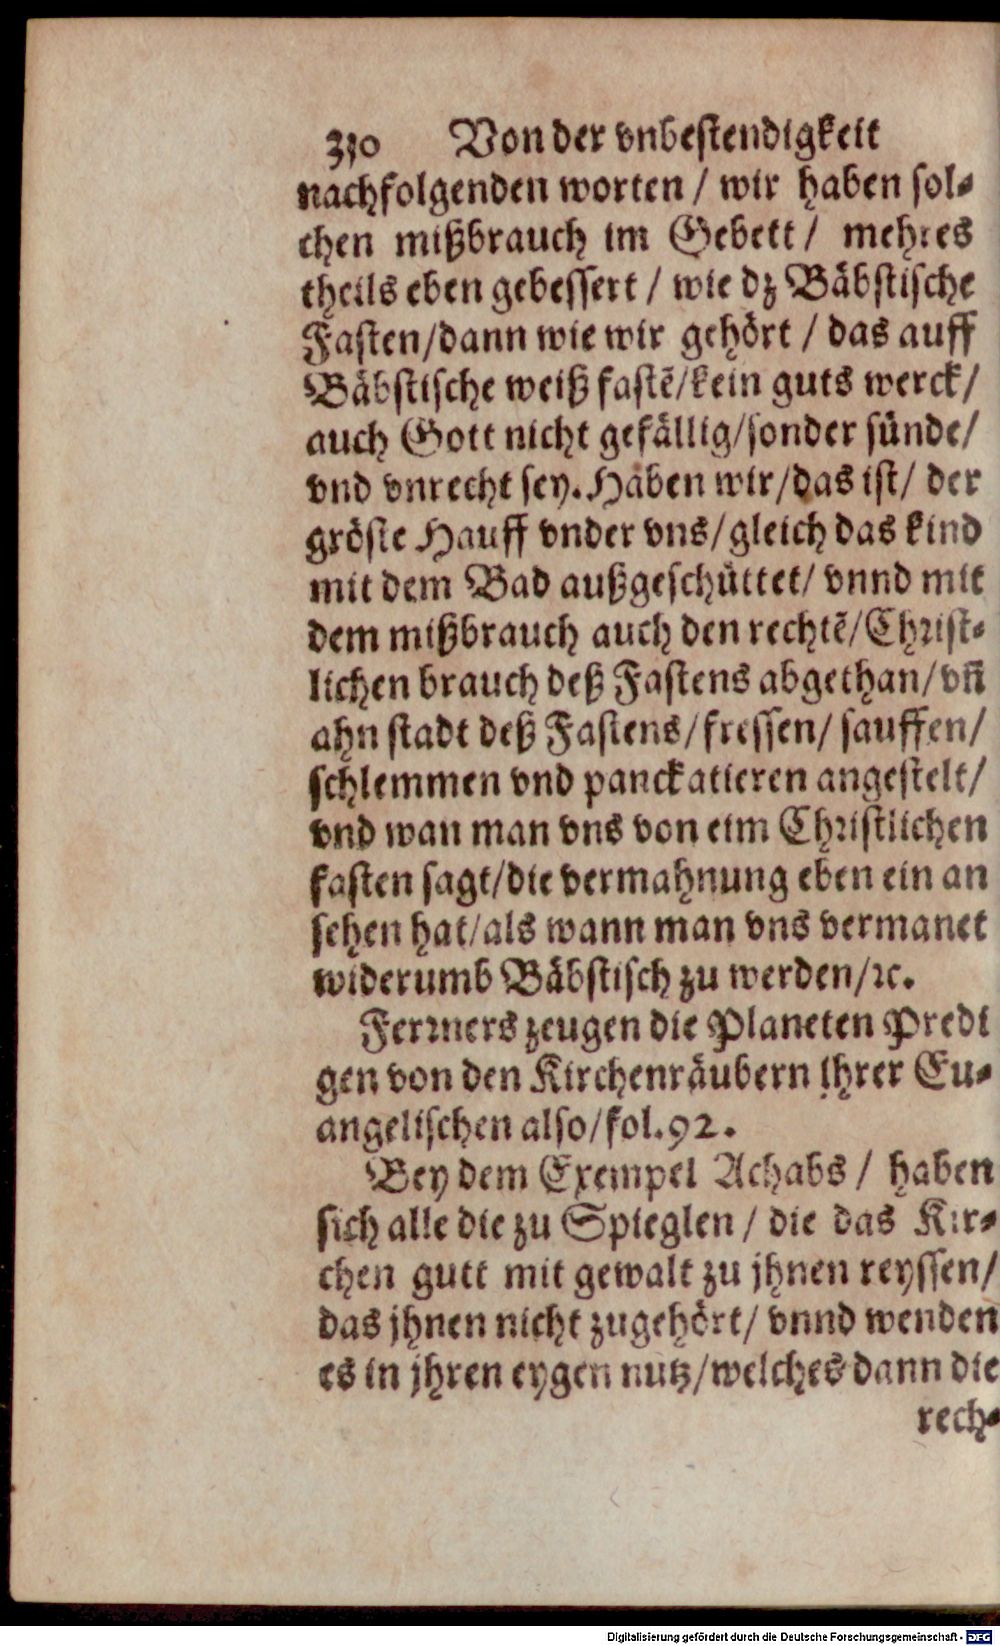 310 Von der vnbestendigkeit
nachfolgenden worten / wir haben sol-
chen mißbrauch im Gebett / mehres
theils eben gebessert / wie dz Bäbstische
Fasten/dann wie wir gehört / das auff
Bäbstische weiß fastē/kein guts werck/
auch Gott nicht gefällig/sonder sünde/
vnd vnrecht sey. Haben wir/das ist/ der
gröste Hauff vnder vns/gleich das kind
mit dem Bad außgeschüttet/ vnnd mit
dem mißbrauch auch den rechtē/Christ-
lichen brauch deß Fastens abgethan/vn̄
ahn stadt deß Fastens/fressen/ sauffen/
schlemmen vnd panckatieren angestelt/
vnd wan man vns von eim Christlichen
fasten sagt/die vermahnung eben ein an
sehen hat/als wann man vns vermanet
widerumb Bäbstisch zu werden/ꝛc.
Ferrners zeugen die Planeten Predi
gen von den Kirchenräubern ihrer Eu-
angelischen also/fol.92.
Bey dem Exempel Achabs / haben
sich alle die zu Spieglen / die das Kir-
chen gutt mit gewalt zu jhnen reyssen/
das jhnen nicht zugehört/ vnnd wenden
es in jhren eygen nutz/welches dann die
rech-
Digitalisierung gefördert durch die Deutsche Forschungsgemeinschaft - DFG